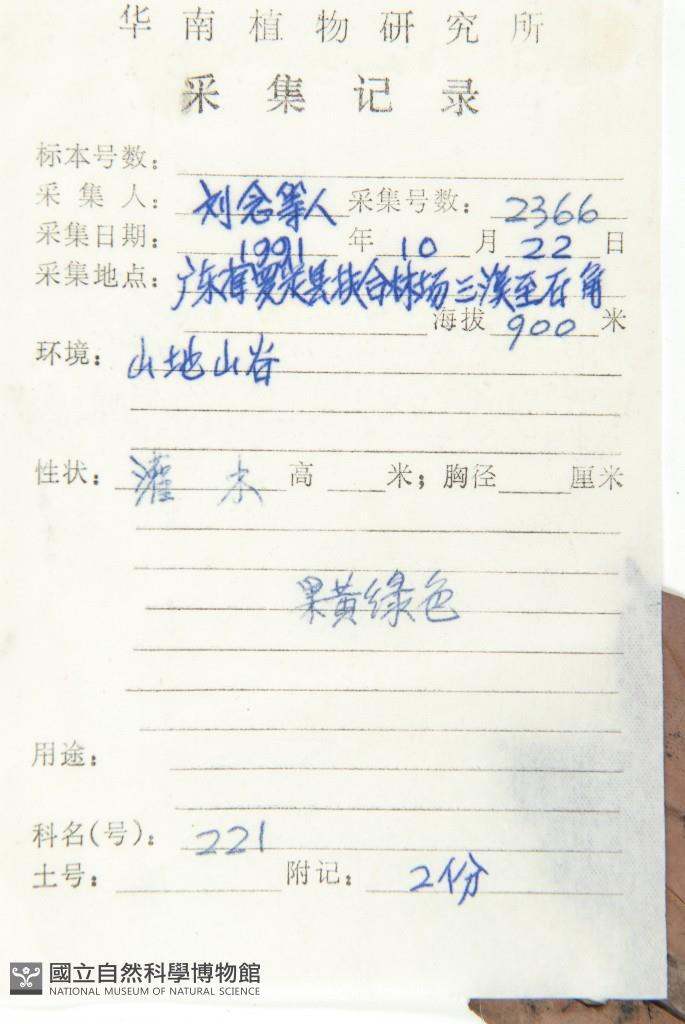 华南植物研究所
采集记录
标本号数:
采集人: 刘念等人 采集号数: 2366
采集日期: 1991 年 10 月 22 日
采集地点: 广东省 县 林场三溪至
海拔 900 米
环境: 山地山谷
性状: 灌 木 高 米; 胸径 厘米
果黄绿色
用途:
科名(号): 221
土号: 附记: 2份
國立自然科學博物館
NATIONAL MUSEUM OF NATURAL SCIENCE